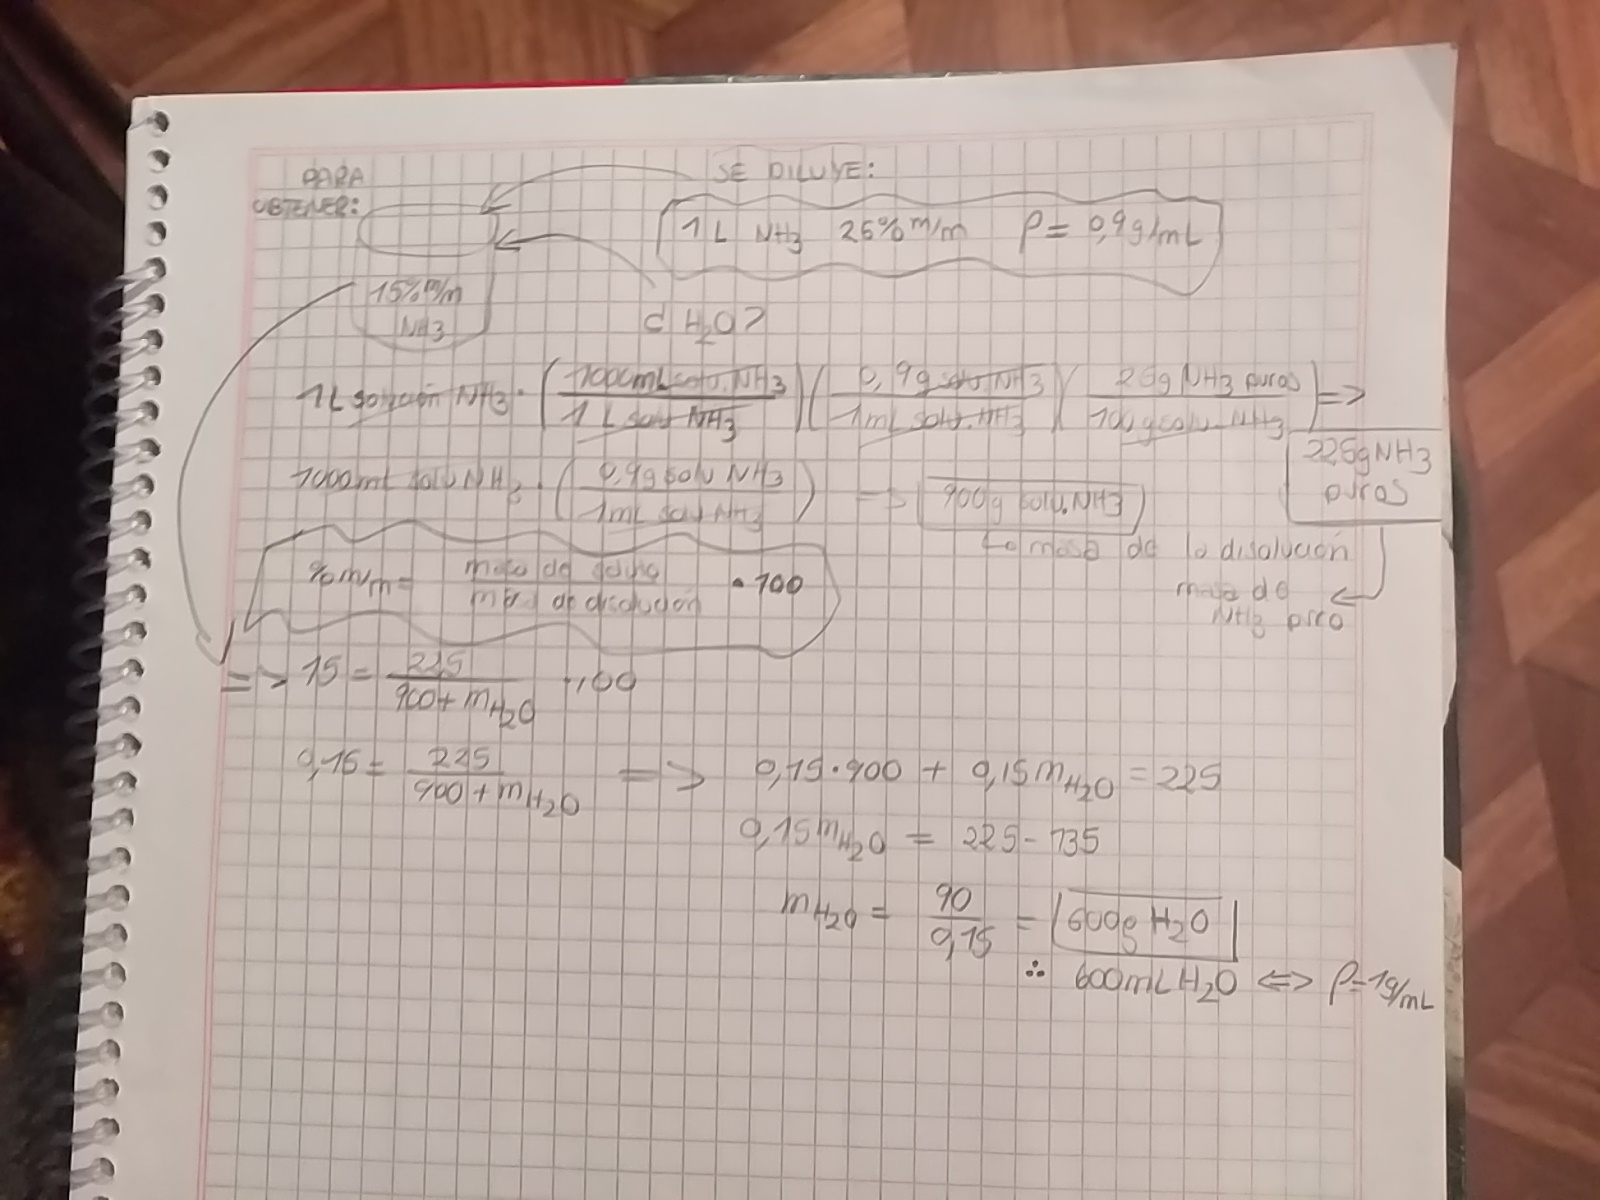 PARA
OBTENER:
SE DILUYE:
1L NH3 25% m/m ρ = 0,9g/mL
15% m/m
NH3
¿ H2O?
1L solución NH3 · (1000mL solu. NH3 / 1L solu NH3) (0,9g solu NH3 / 1mL solu. NH3) (25g NH3 puros / 100g solu NH3) =>
225g NH3
puros
1000ml solu NH3 · (0,9g solu NH3 / 1mL solu NH3) => 900g solu. NH3
masa de la disolución
masa de
NH3 puro
%m/m = masa de / masa de disolución · 100
=> 15 = 225 / 900 + mH2O · 100
0,15 = 225 / 900 + mH2O => 0,15·900 + 0,15mH2O = 225
0,15mH2O = 225 - 135
mH2O = 90 / 0,15 = 600g H2O
∴ 600mL H2O <=> ρ=1g/mL